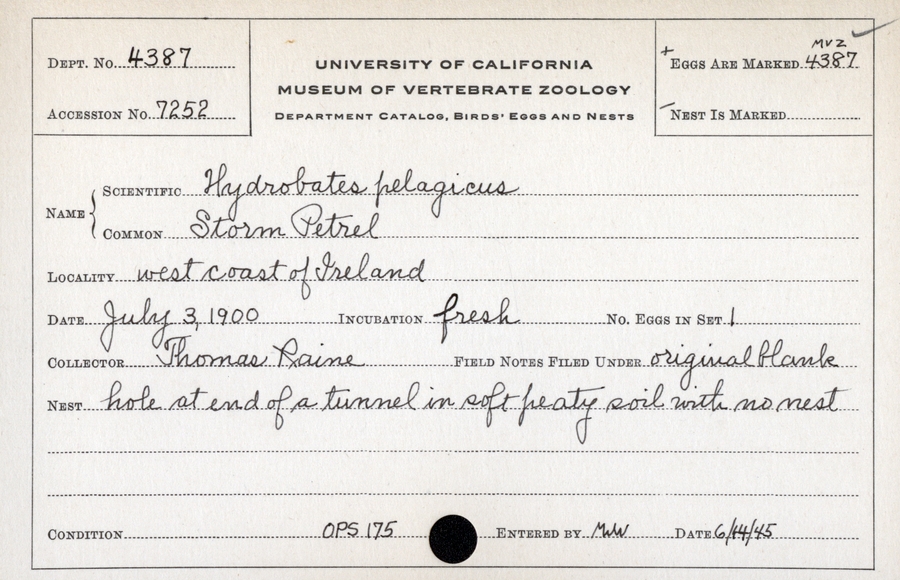 MVZ
DEPT. No. 4387 UNIVERSITY OF CALIFORNIA + EGGS ARE MARKED 4387
MUSEUM OF VERTEBRATE ZOOLOGY
ACCESSION No. 7252 DEPARTMENT CATALOG, BIRDS' EGGS AND NESTS - NEST IS MARKED
NAME { SCIENTIFIC Hydrobates pelagicus
COMMON Storm Petrel
LOCALITY west coast of Ireland
DATE July 3, 1900 INCUBATION fresh No. EGGS IN SET 1
COLLECTOR Thomas Raine FIELD NOTES FILED UNDER original blank
NEST hole at end of a tunnel in soft peaty soil with no nest
CONDITION OPS 175 ENTERED BY MWW DATE 6/14/45